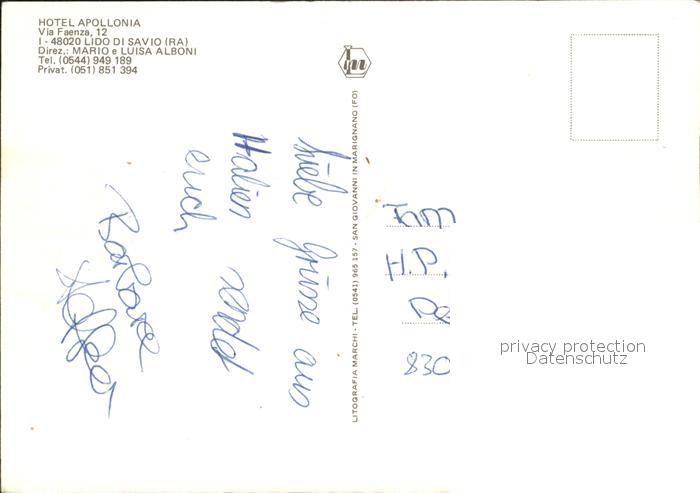 HOTEL APOLLONIA
Via Faenza, 12
I - 48020 LIDO DI SAVIO (RA)
Direz.: MARIO e LUISA ALBONI
Tel. (0544) 949 189
Privat. (051) 851 394
Liebe Grüsse aus
Italien sendet
euch
Barbara
LITOGRAFIA MARCHI - TEL. (0541) 965 157 - SAN GIOVANNI IN MARIGNANO (FO)
Fam
H.P.
830
privacy protection
Datenschutz